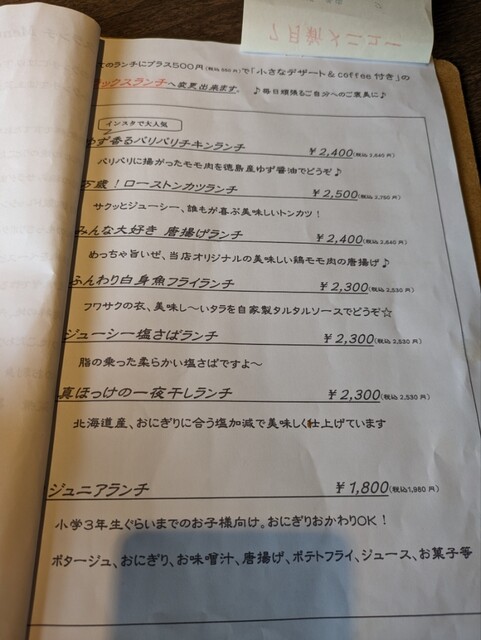 7月新メニュー
てのランチにプラス500円(税込550円)で「小さなデザート&coffee付き」の
ックスランチへ変更出来ます。 ♪毎日頑張るご自分へのご褒美に♪
インスタで大人気
ゆず香るパリパリチキンランチ ¥2,400(税込2,640円)
パリパリに揚がったモモ肉を徳島産ゆず醤油でどうぞ♪
万歳!ローストンカツランチ ¥2,500(税込2,750円)
サクッとジューシー、誰もが喜ぶ美味しいトンカツ!
みんな大好き 唐揚げランチ ¥2,400(税込2,640円)
めっちゃ旨いぜ、当店オリジナルの美味しい鶏モモ肉の唐揚げ♪
ふんわり白身魚フライランチ ¥2,300(税込2,530円)
フワサクの衣、美味し〜いタラを自家製タルタルソースでどうぞ☆
ジューシー塩さばランチ ¥2,300(税込2,530円)
脂の乗った柔らかい塩さばですよ〜
真ほっけの一夜干しランチ ¥2,300(税込2,530円)
北海道産、おにぎりに合う塩加減で美味しく仕上げています
ジュニアランチ ¥1,800(税込1,980円)
小学3年生ぐらいまでのお子様向け。おにぎりおかわりOK!
ポタージュ、おにぎり、お味噌汁、唐揚げ、ポテトフライ、ジュース、お菓子等